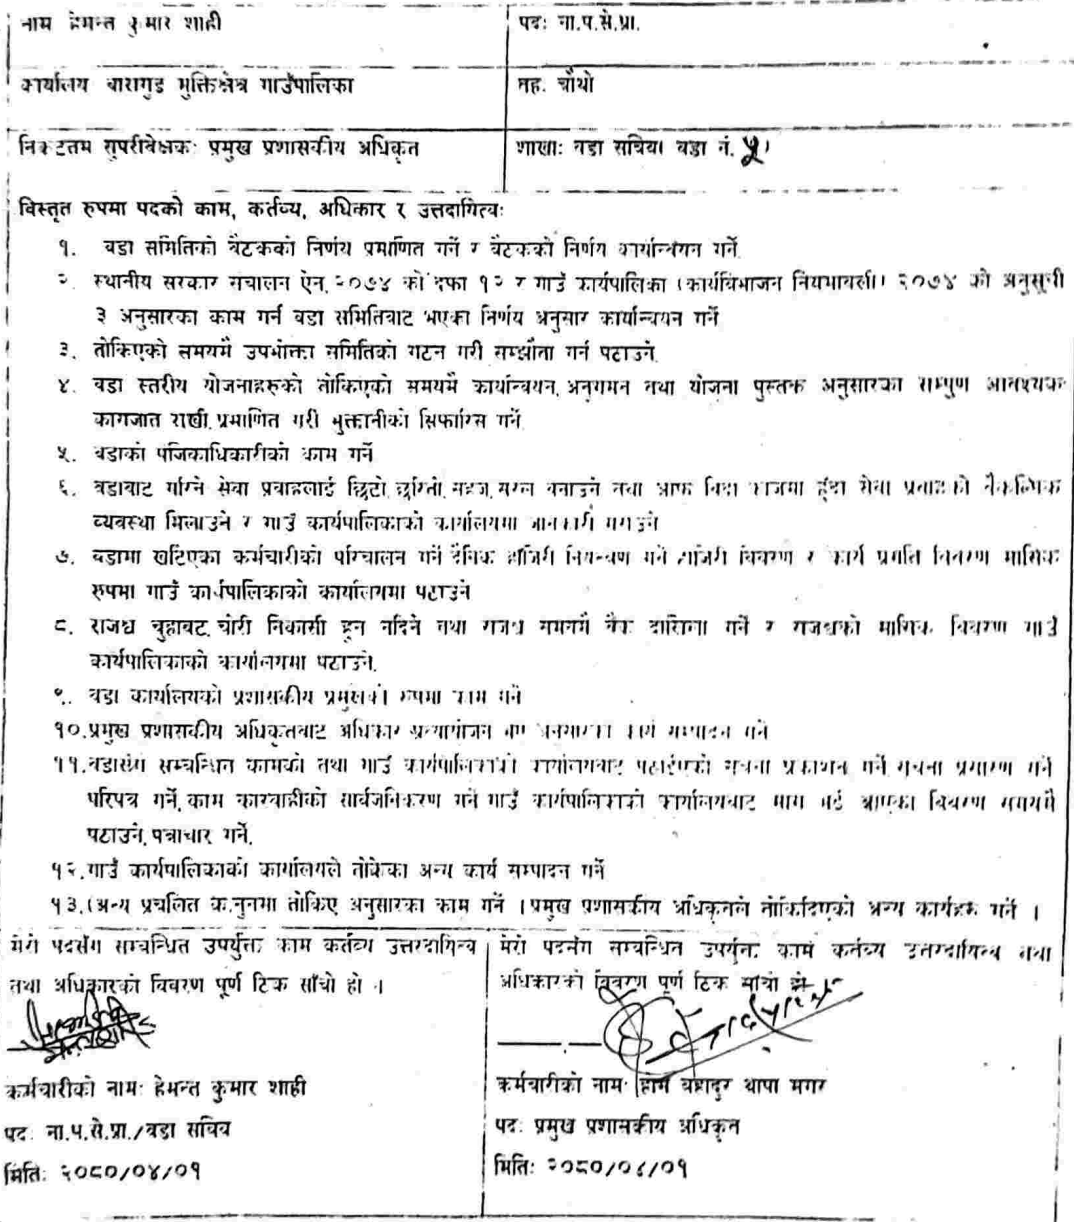 नाम हेमन्त कुमार शाही
पदः ना.प.से.प्रा.
कार्यालय बारागुड मुक्तिक्षेत्र गाउँपालिका
तह. चौथो
निकटतम सुपरीवेक्षकः प्रमुख प्रशासकीय अधिकृत
शाखाः वडा सचिव। वडा नं. ५।
विस्तृत रुपमा पदको काम, कर्तव्य, अधिकार र उत्तदागित्वः
१. वडा समितिको बैठकको निर्णय प्रमाणित गर्ने र बैठकको निर्णय कार्यान्वयन गर्ने
२. स्थानीय सरकार संचालन ऐन, २०७४ को दफा १२ र गाउँ कार्यपालिका (कार्यविभाजन नियमावली) २०७४ को अनुसूची
३ अनुसारका काम गर्न वडा समितिबाट भएका निर्णय अनुसार कार्यान्वयन गर्ने
३. तोकिएको समयमै उपभोक्ता समितिको गठन गरी सम्झौता गर्न पठाउने
४. वडा स्तरीय योजनाहरुको तोकिएको समयमै कार्यान्वयन, अनुगमन तथा योजना पुस्तक अनुसारका सम्पुण आवश्यक
कागजात राखी प्रमाणित गरी भुक्तानीको सिफारिस गर्ने
५. वडाको पंजिकाधिकारीको काम गर्ने
६. वडाबाट गरिने सेवा प्रवाहलाई छिटो छरितो, सहज, सरल बनाउने तथा आफु बिदा काजमा हुँदा सेवा प्रवाहको वैकल्पिक
व्यवस्था मिलाउने र गाउँ कार्यपालिकाको कार्यालयमा जानकारी गराउने
७. वडामा खटिएका कर्मचारीको परिचालन गर्ने दैनिक हाजिरी नियन्त्रण गर्ने हाजिरी विवरण र कार्य प्रगति विवरण मासिक
रुपमा गाउँ कार्यपालिकाको कार्यालयमा पठाउने
८. राजश्व चुहावट, चोरी निकासी हुन नदिने तथा राजश्व समयमै बैंक दाखिला गर्ने र राजश्वको मासिक विवरण गाउँ
कार्यपालिकाको कार्यालयमा पठाउने.
९. वडा कार्यालयको प्रशासकीय प्रमुखको रुपमा काम गर्ने
१०.प्रमुख प्रशासकीय अधिकृतबाट अधिकार प्रत्यायोजन भए अनुसारका कार्य सम्पादन गर्ने
११.वडासँग सम्बन्धित कामको तथा गाउँ कार्यपालिकाको कार्यालयबाट पठाईएको सूचना प्रकाशन गर्ने, सूचना प्रसारण गर्ने
परिपत्र गर्ने, काम कारवाहीको सार्वजनिकरण गर्ने गाउँ कार्यपालिकाको कार्यालयबाट माग भई आएका विवरण समयमै
पठाउने, पत्राचार गर्ने.
१२.गाउँ कार्यपालिकाको कार्यालयले तोकेका अन्य कार्य सम्पादन गर्ने
१३.(अन्य प्रचलित कानुनमा तोकिए अनुसारका काम गर्ने । प्रमुख प्रशासकीय अधिकृतले तोकिदिएको अन्य कार्यहरु गर्ने ।
मेरो पदसँग सम्बन्धित उपर्युक्त काम कर्तव्य उत्तरदायित्व
तथा अधिकारको विवरण पूर्ण ठिक साँचो हो ।
कर्मचारीको नामः हेमन्त कुमार शाही
पदः ना.प.से.प्रा./वडा सचिव
मितिः २०८०/०४/०१
मेरो पदसँग सम्बन्धित उपर्युक्त काम कर्तव्य उत्तरदायित्व तथा
अधिकारको विवरण पूर्ण ठिक साँचो हो
कर्मचारीको नामः बहादुर थापा मगर
पदः प्रमुख प्रशासकीय अधिकृत
मितिः २०८०/०४/०१